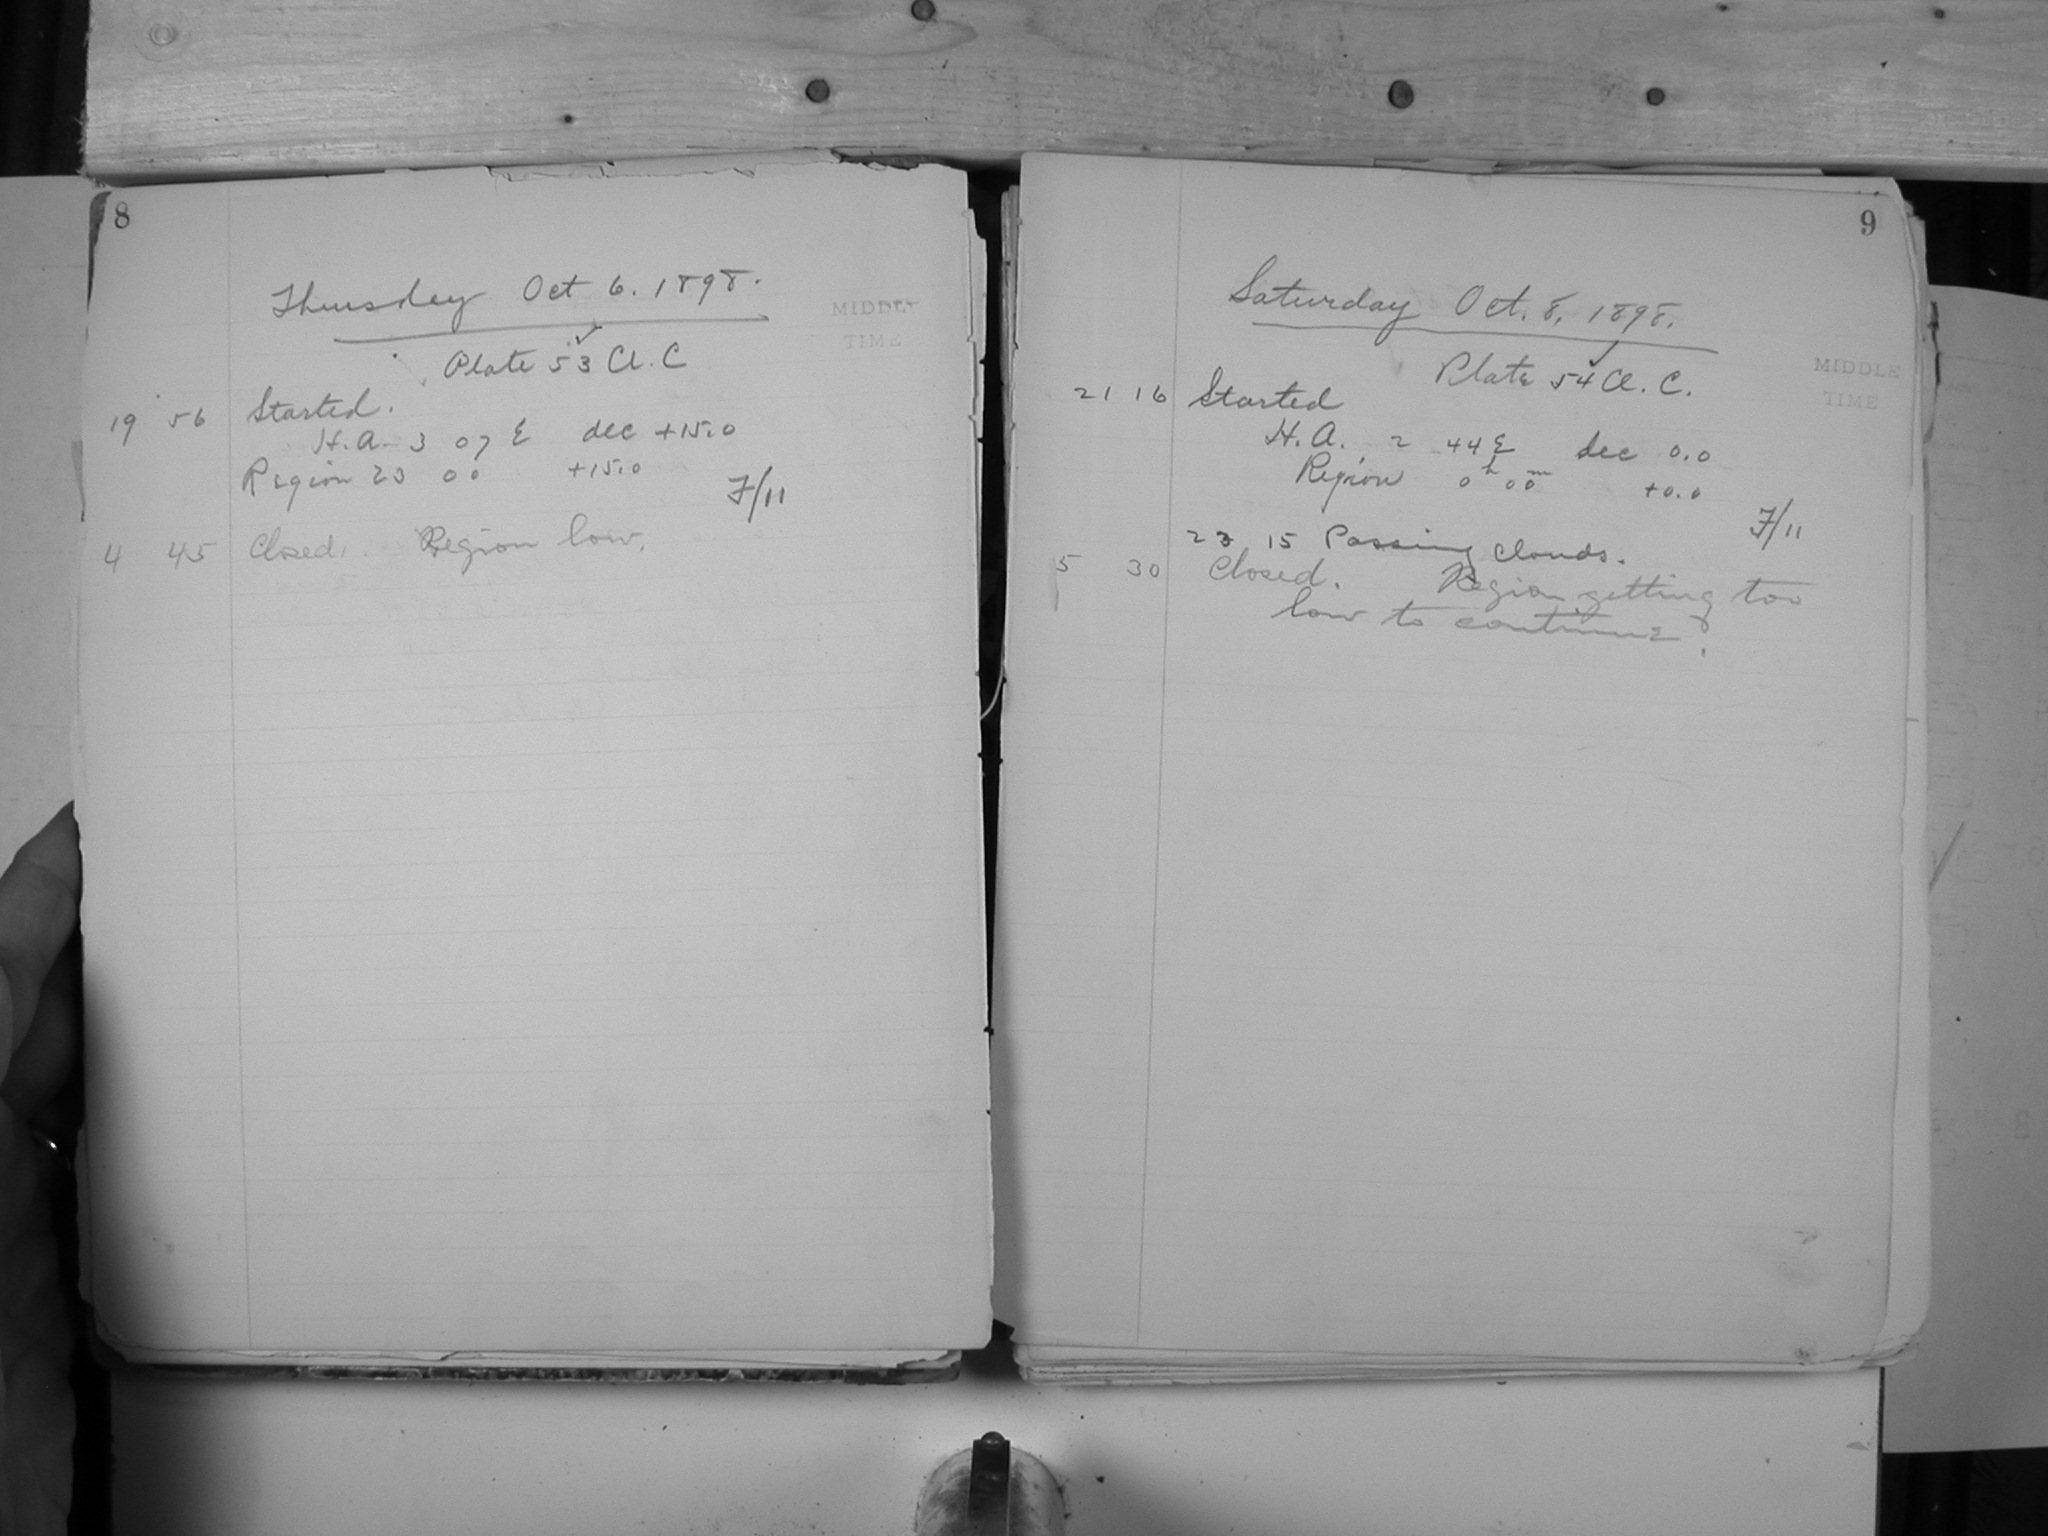 8
Thursday Oct 6. 1898.
MIDDLE
TIME
Plate 53 A.C
19 56 Started.
H.A. 3 07 E dec +15.0
Region 23 00 +15.0
F/11
4 45 Closed. Region low.
9
Saturday Oct. 8, 1898.
MIDDLE
TIME
Plate 54 A.C.
21 16 Started
H.A. 2 44 E dec 0.0
Region 0h 00m +0.0
F/11
23 15 Passing clouds.
5 30 Closed. Region getting too
low to continue.